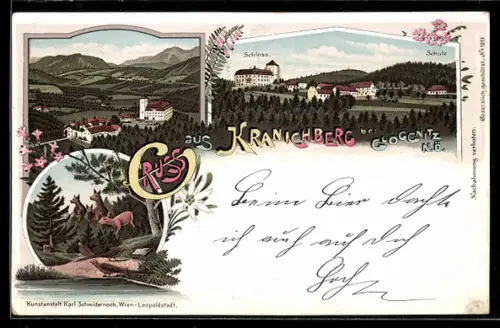 Schloss.
Schule
GRUSS AUS KRANICHBERG bei GLOGGNITZ
N.Ö.
Beim Bier dachte
ich auch auf dich
Hoch
Kunstanstalt Karl Schwidernoch, Wien-Leopoldstadt.
Nachahmung verboten.
Gesetzlich geschützt. No